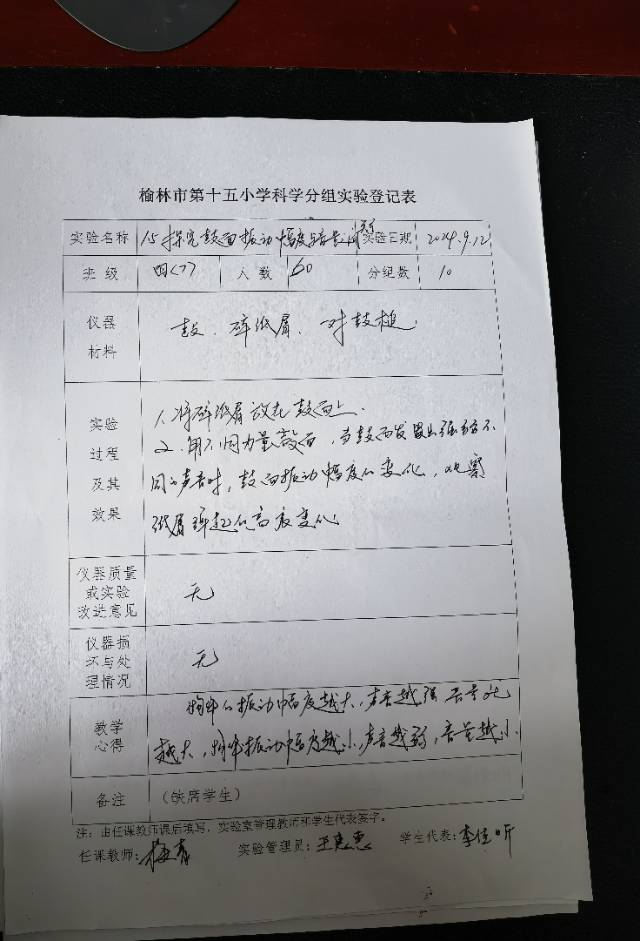 榆林市第十五小学科学分组实验登记表
实验名称 15 探究鼓面振动幅度与音量 实验日期 2024.9.12
班级 四<7> 人数 60 分组数 10
仪器材料 鼓、碎纸屑、一对鼓槌
实验过程及其效果
1、将碎纸屑放在鼓面上.
2、用不同力量敲鼓面,当鼓面发出强弱不
同的声音时,鼓面振动幅度的变化,观察
纸屑弹起的高度变化
仪器质量或实验改进意见 无
仪器损坏与处理情况 无
教学心得
物体的振动幅度越大,声音越强 音量也
越大,物体振动幅度越小,声音越弱,音量越小.
备注 (缺席学生)
注:由任课教师课后填写,实验室管理教师和学生代表签字。
任课教师: 实验管理员:王惠惠 学生代表:李佳昕